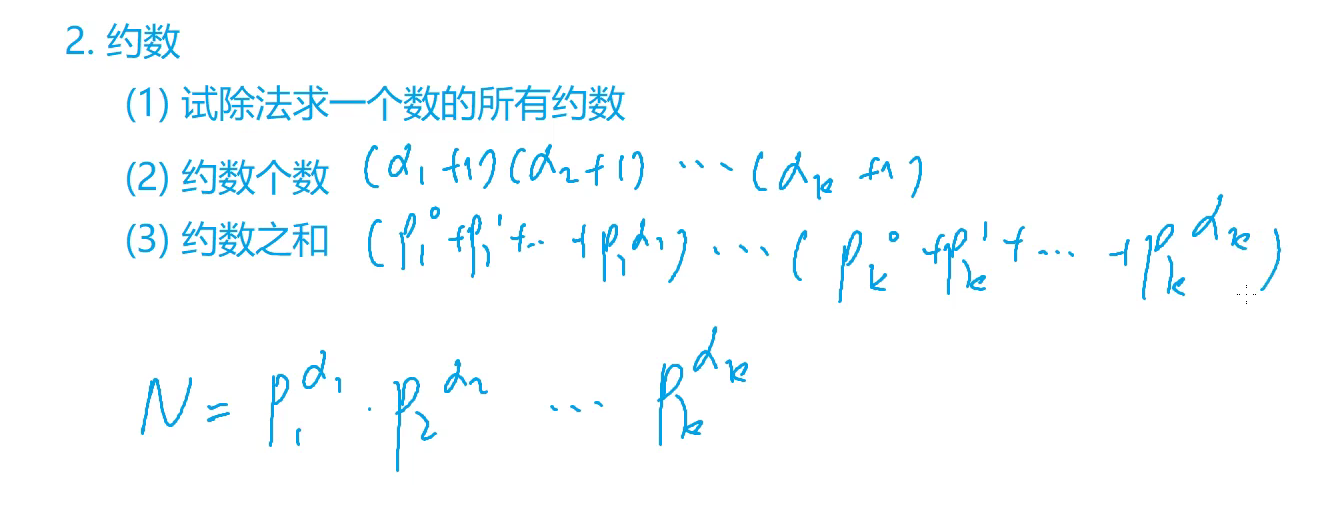 2. 约数
(1) 试除法求一个数的所有约数
(2) 约数个数 (α₁+1)(α₂+1)···(αₖ+1)
(3) 约数之和 (p₁⁰+p₁¹+…+p₁^α₁)···(pₖ⁰+pₖ¹+…+pₖ^αₖ)
N = p₁^α₁ · p₂^α₂ ··· pₖ^αₖ